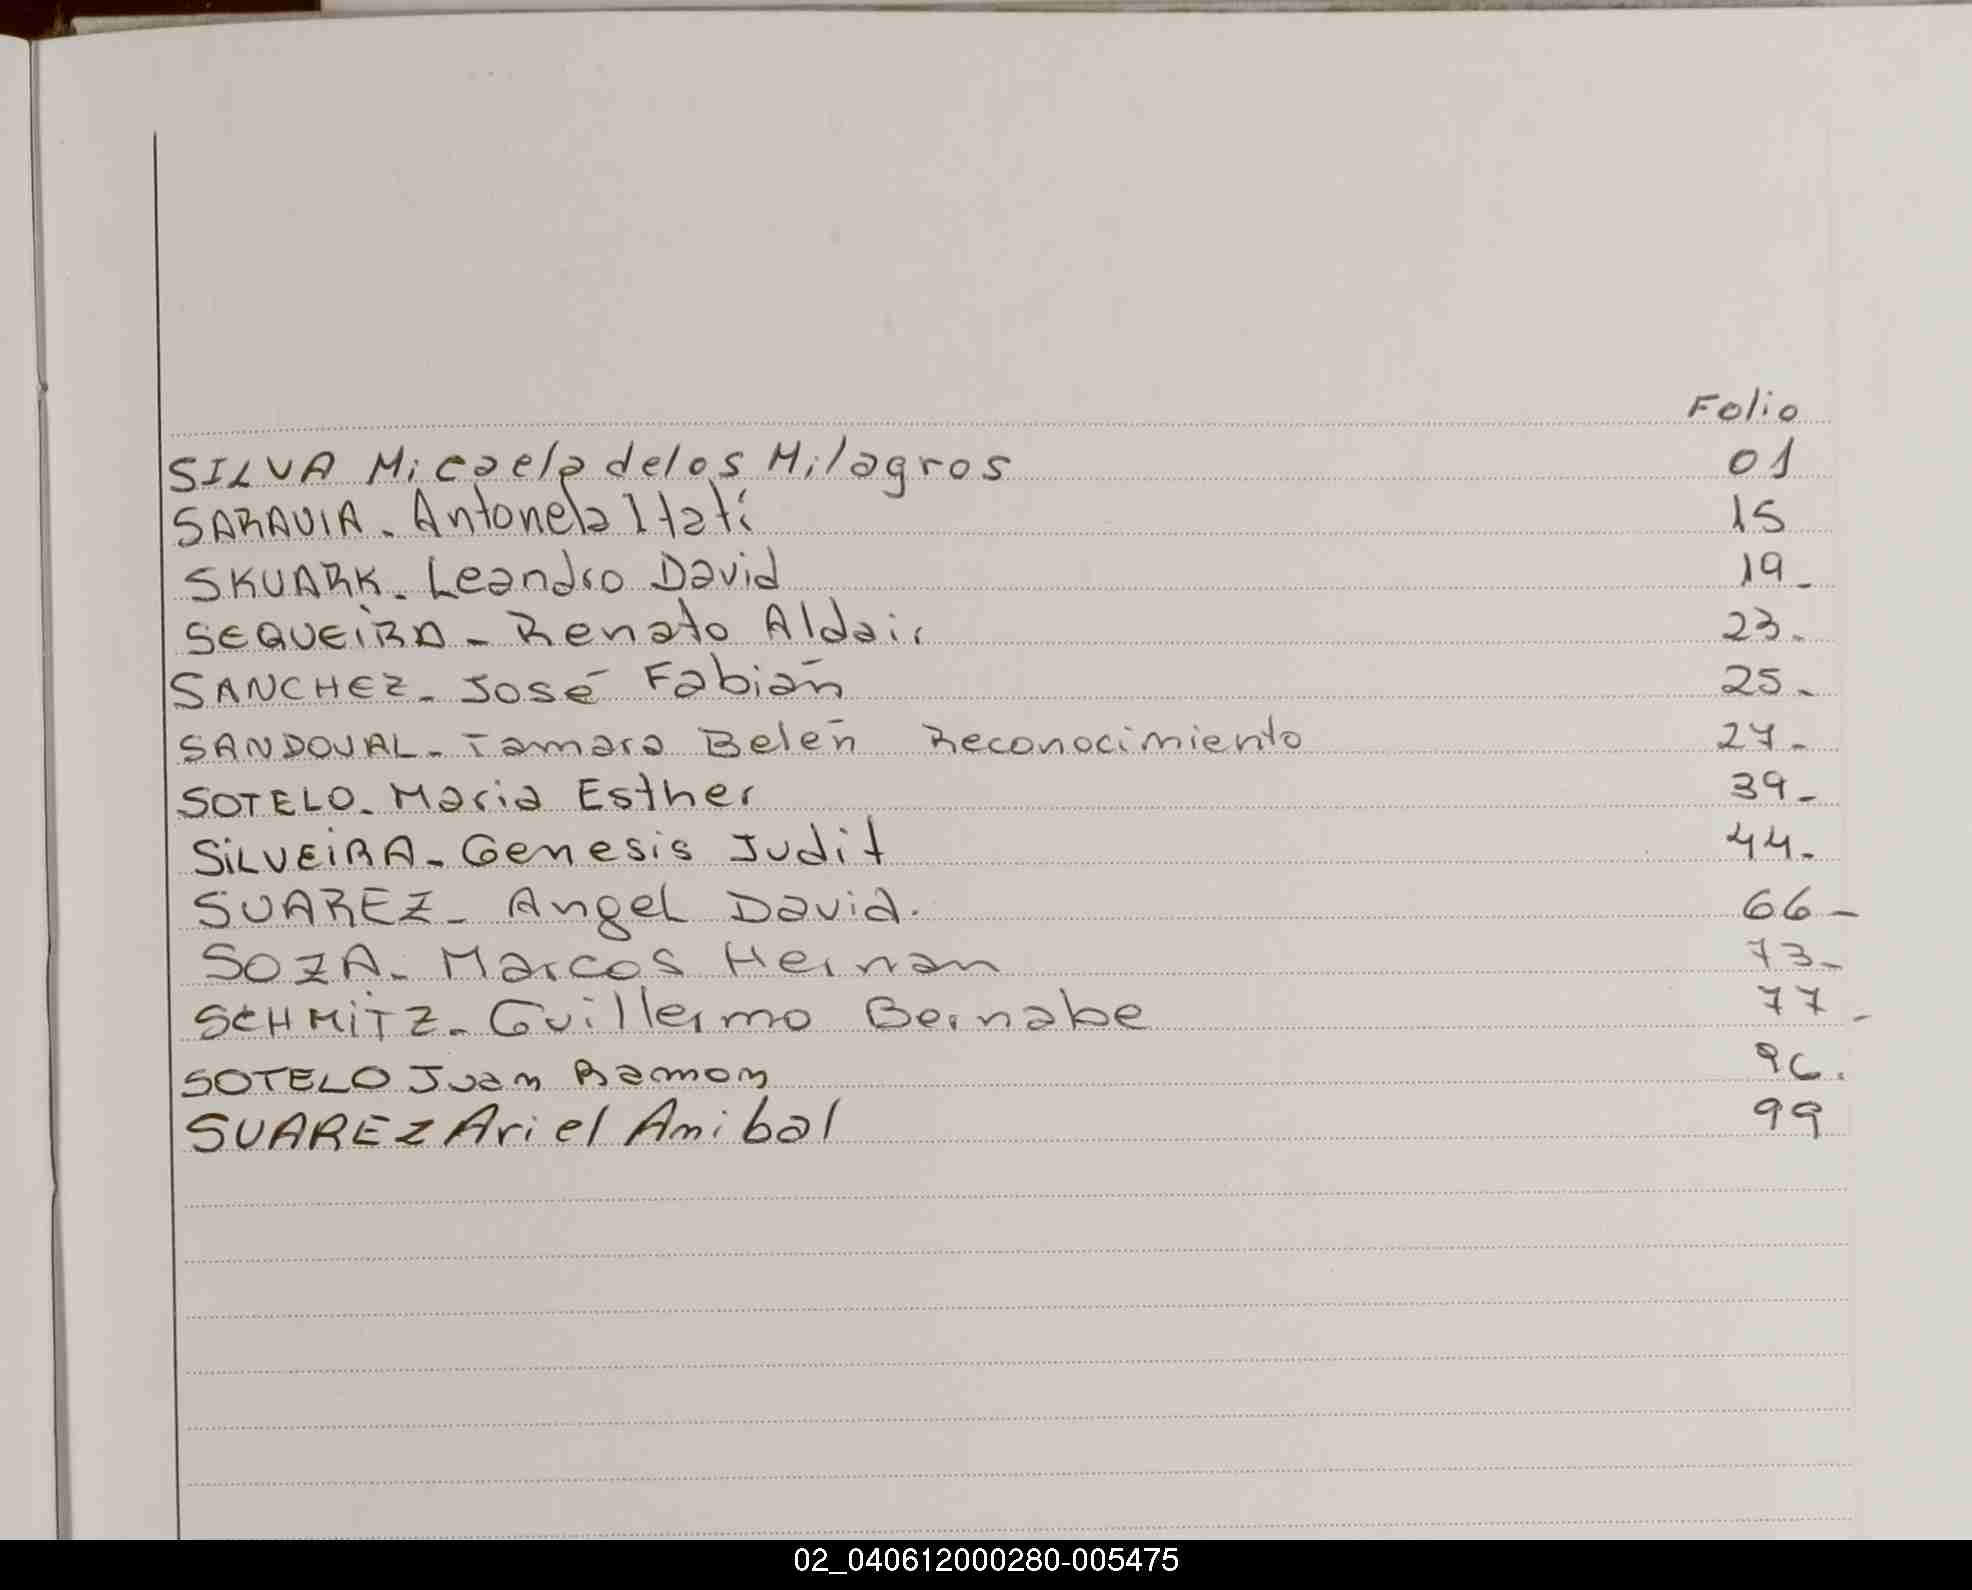 Folio
SILVA Micaela delos Milagros 01
SARAVIA. Antonela Itatí 15
SKUARK. Leandro David 19-
SEQUEiRA - Renato Aldair 23-
SANCHEZ- José Fabián 25-
SANDOVAL- Tamara Belén Reconocimiento 27-
SOTELO- Maria Esther 39-
SiLVEiRA- Genesis Judit 44-
SUAREZ- Angel David. 66-
SOZA- Marcos Hernan 73-
SCHMiTZ- Guillermo Bernabe 77-
SOTELO Juan Ramon 96.
SUAREZ Ariel Anibal 99
02_040612000280-005475